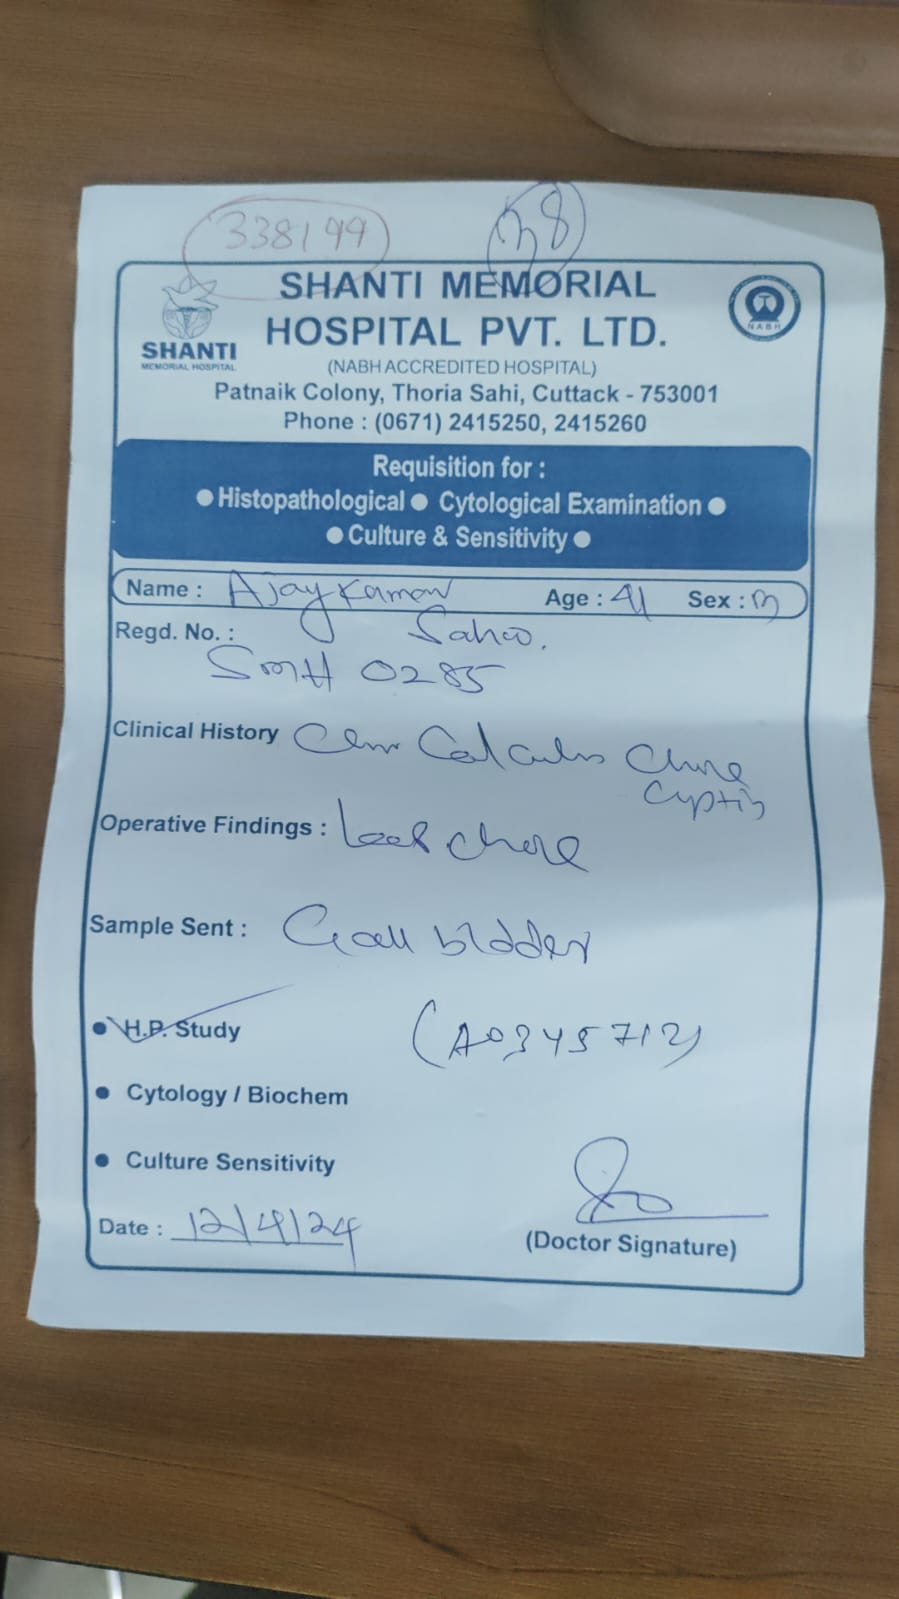 338199
38
SHANTI MEMORIAL
HOSPITAL PVT. LTD.
SHANTI
MEMORIAL HOSPITAL
NABH
(NABH ACCREDITED HOSPITAL)
Patnaik Colony, Thoria Sahi, Cuttack - 753001
Phone : (0671) 2415250, 2415260
Requisition for :
● Histopathological ● Cytological Examination ●
● Culture & Sensitivity ●
Name : Ajay Kumar Age : 41 Sex : M
Regd. No. : Sahoo.
SMH 0285
Clinical History Calculus Chole
cystitis
Operative Findings : Chole
Sample Sent : Gall bladder
● H.P. Study (A0345712)
● Cytology / Biochem
● Culture Sensitivity
Date : 12/4/24
(Doctor Signature)